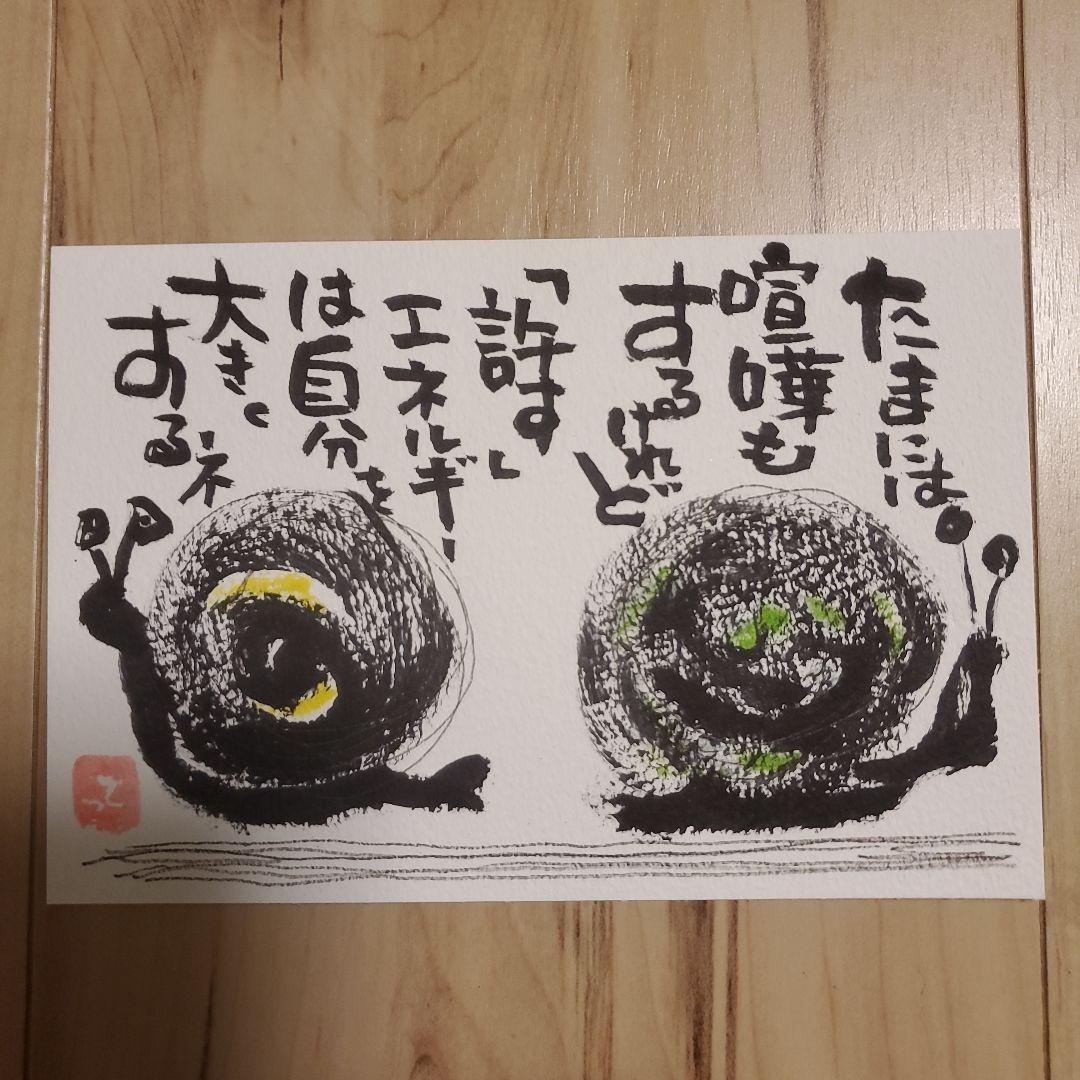 たまには。
喧嘩も
するけれど
「許す」
エネルギー
は自分を
大きく
するネ